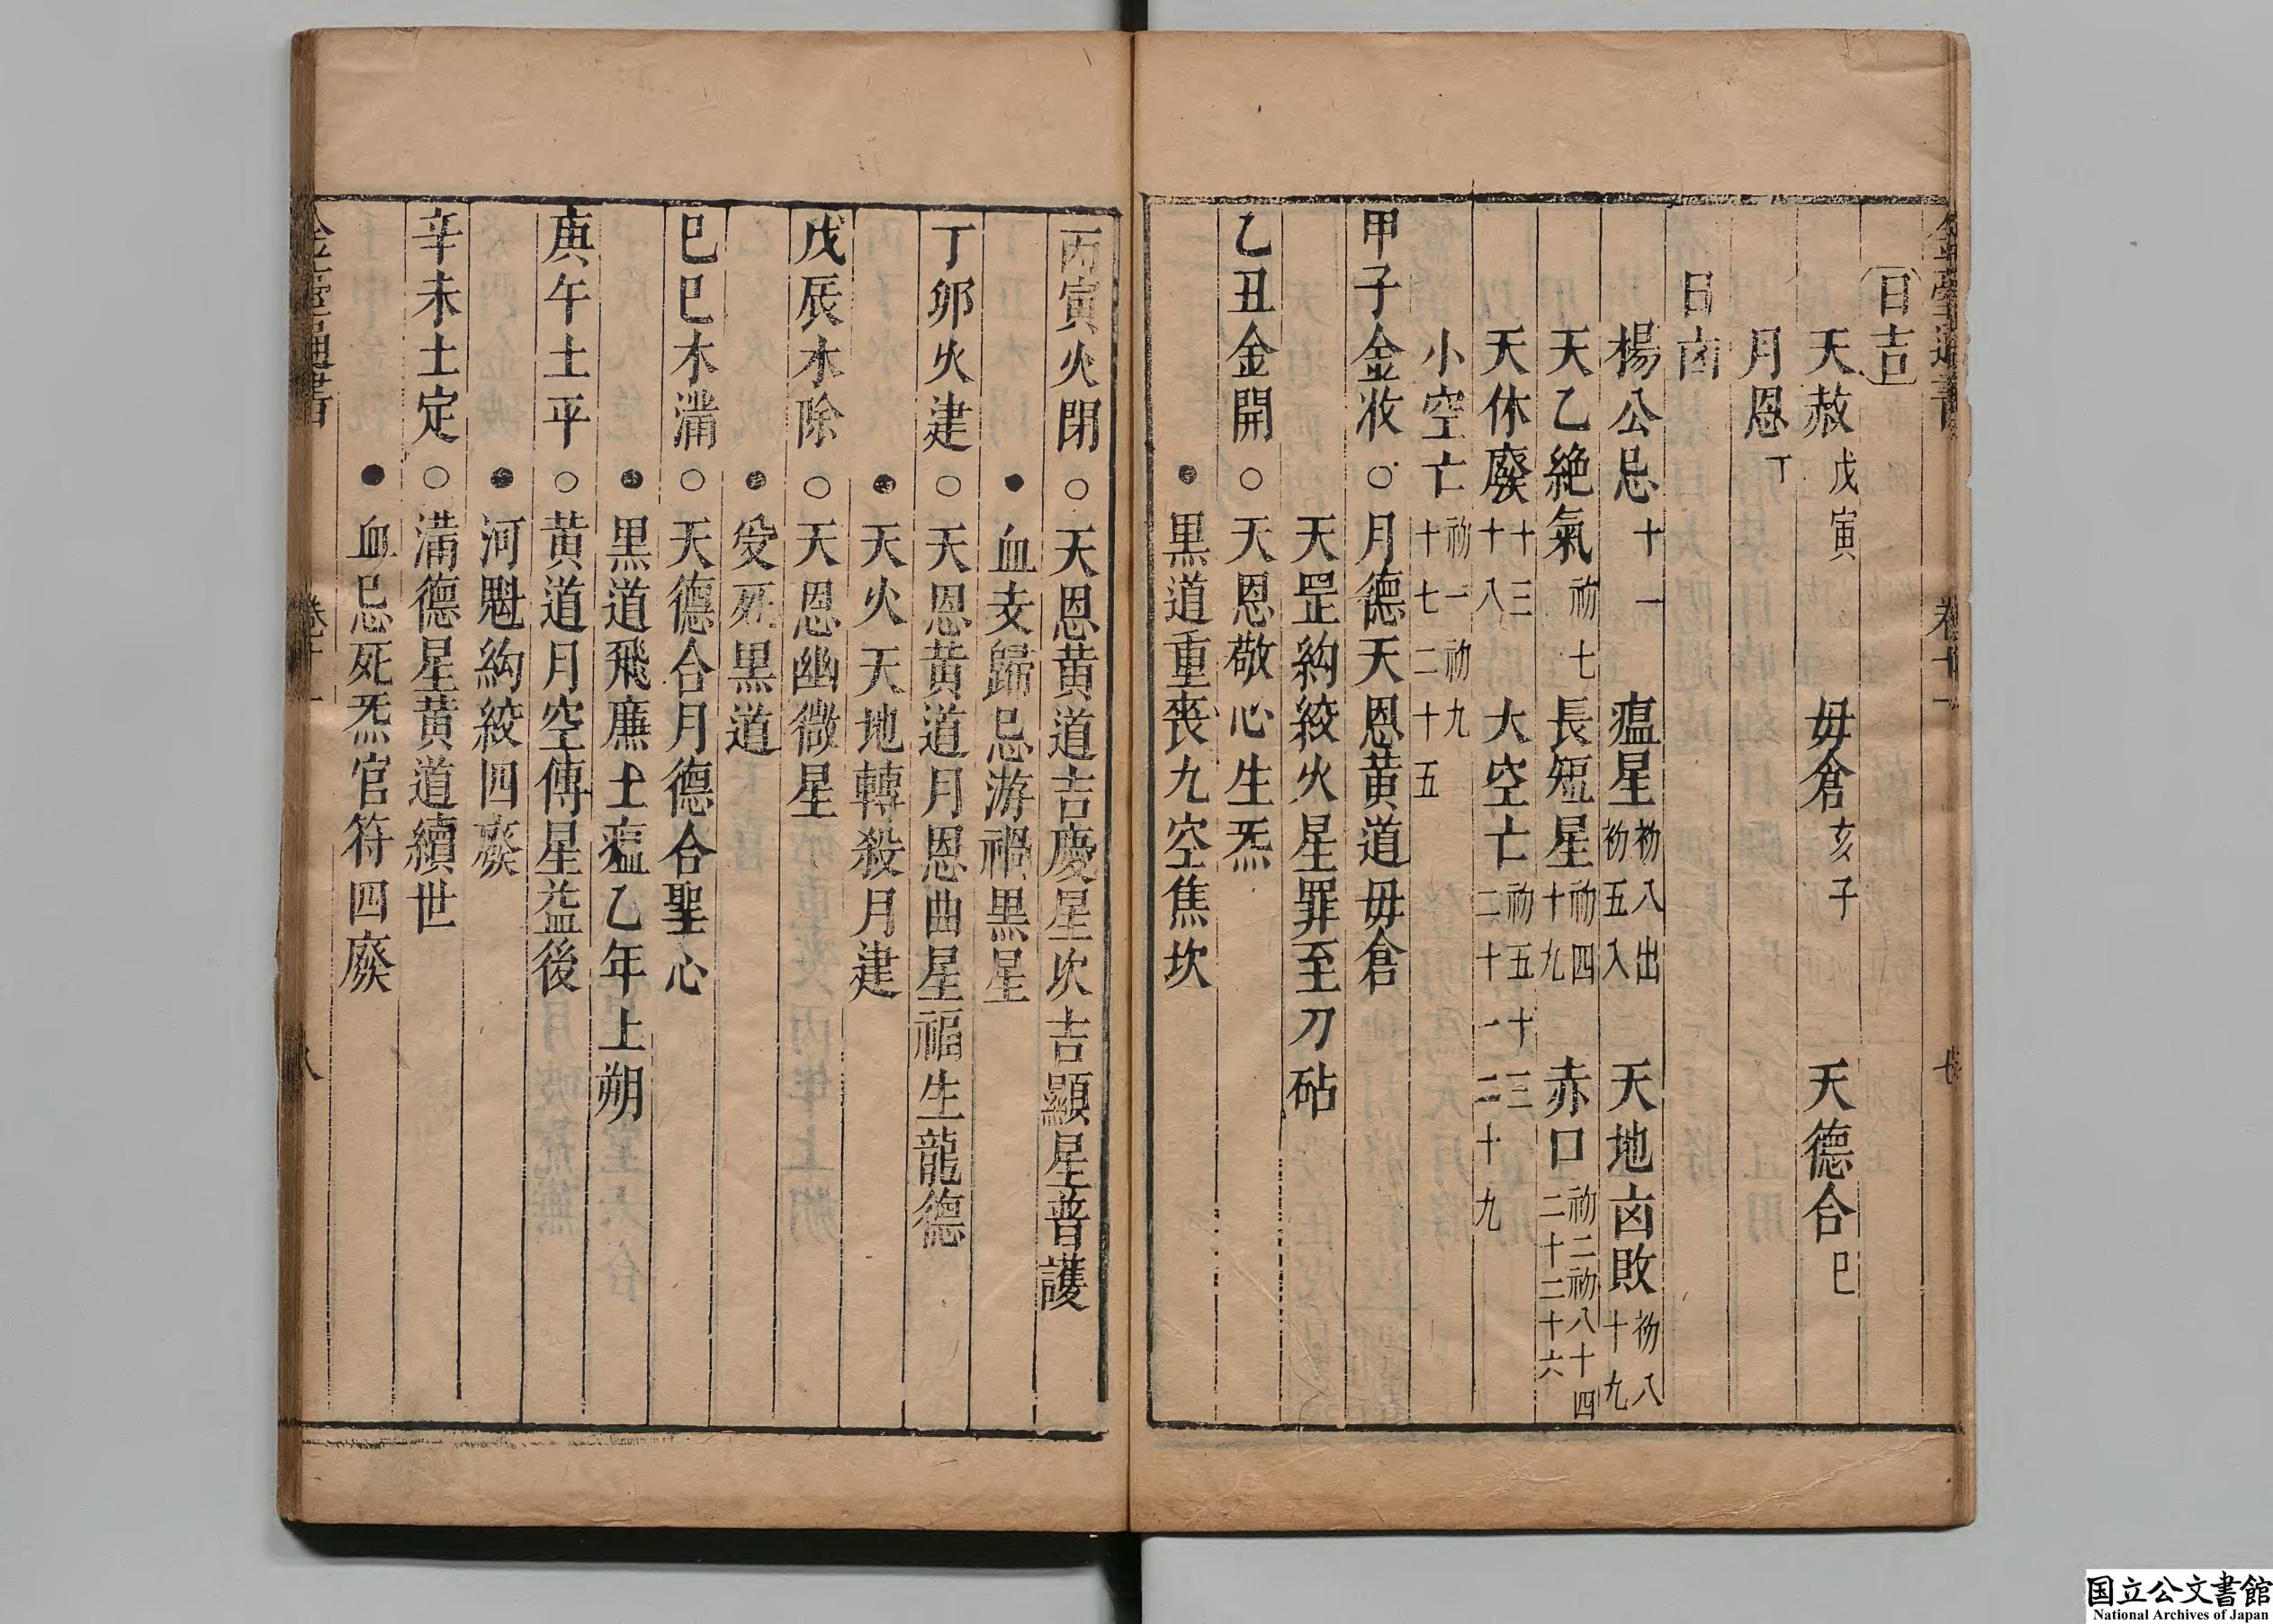 日吉
天赦 戊寅 毋倉 亥子 天德合 巳
月恩 丁
日凶
楊公忌 十一 瘟星 初八出 初五入 天地凶敗 初八 十九
天乙絶氣 初七 長短星 初四 十九 赤口 初二初八十四 二十二十六
天休廢 十三 十八 大空亡 初五 十三 二十一 二十九
小空亡 初一 初九 十七 二十五
甲子金收○月德天恩黃道毋倉
天罡鈎絞火星罪至刀砧
乙丑金開○天恩敬心生炁
●黒道重喪九空焦坎
丙寅火閉○天恩黄道吉慶星次吉顯星普護
●血支歸忌游禍黒星
丁卯火建○天恩黄道月恩曲星福生龍德
●天火天地轉殺月建
戊辰木除○天恩幽微星
●受死黒道
巳巳木滿○天德合月德合聖心
●黒道飛廉土瘟乙年上朔
庚午土平○黄道月空傳星益後
●河魁絇絞四廢
辛未土定○滿德星黄道續世
●血忌死炁官符四廢
卷十一
七
八
国立公文書館
National Archives of Japan